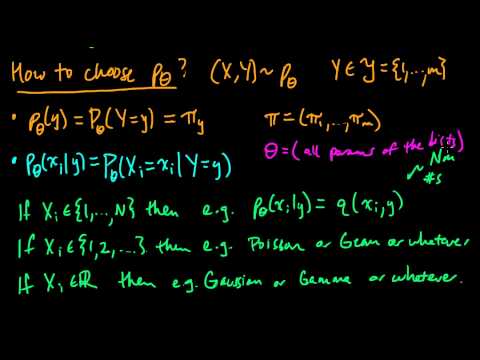 How to choose p_θ? (X,Y) ~ p_θ Y ∈ 𝒴 = {1,...,m}
• p_θ(y) = P_θ(Y=y) = π_y π = (π_1,...,π_m)
θ = ( all params of the dists)
• p_θ(x_i|y) = P_θ(X_i = x_i | Y=y) ~ Nm #s
If X_i ∈ {1,...,N} then e.g. p_θ(x_i|y) = q(x_i,y)
If X_i ∈ {1,2,...} then e.g. Poisson or Geom or whatever
If X_i ∈ ℝ then e.g. Gaussian or Gamma or whatever.